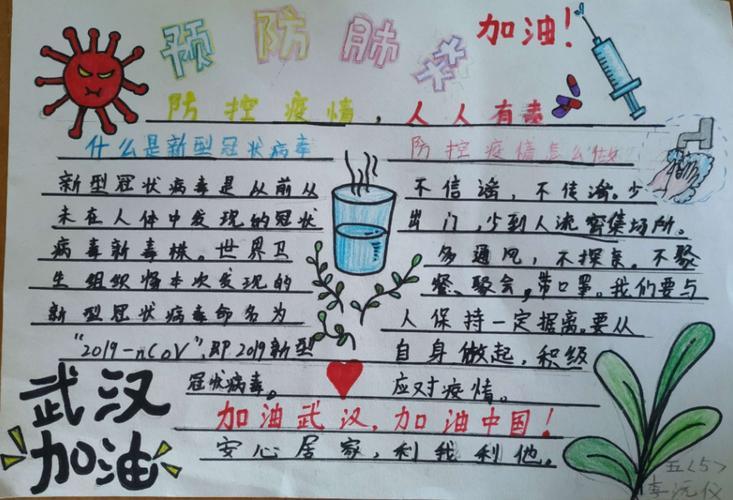 预防肺炎
加油！
防控疫情，人人有毒
什么是新型冠状病毒
新型冠状病毒是从前从
未在人体中发现的冠状
病毒新毒株。世界卫
生组织将本次发现的
新型冠状病毒命名为
“2019-nCoV”,即2019新型
冠状病毒。
防控疫情怎么做
不信谣，不传谣。少
出门，少到人流密集场所。
多通风，不探亲。不聚
餐、聚会，带口罩。我们要与
人保持一定据离。要从
自身做起，积极
应对疫情。
武汉
加油
加油武汉，加油中国！
安心居家，利我利他。
五<5>